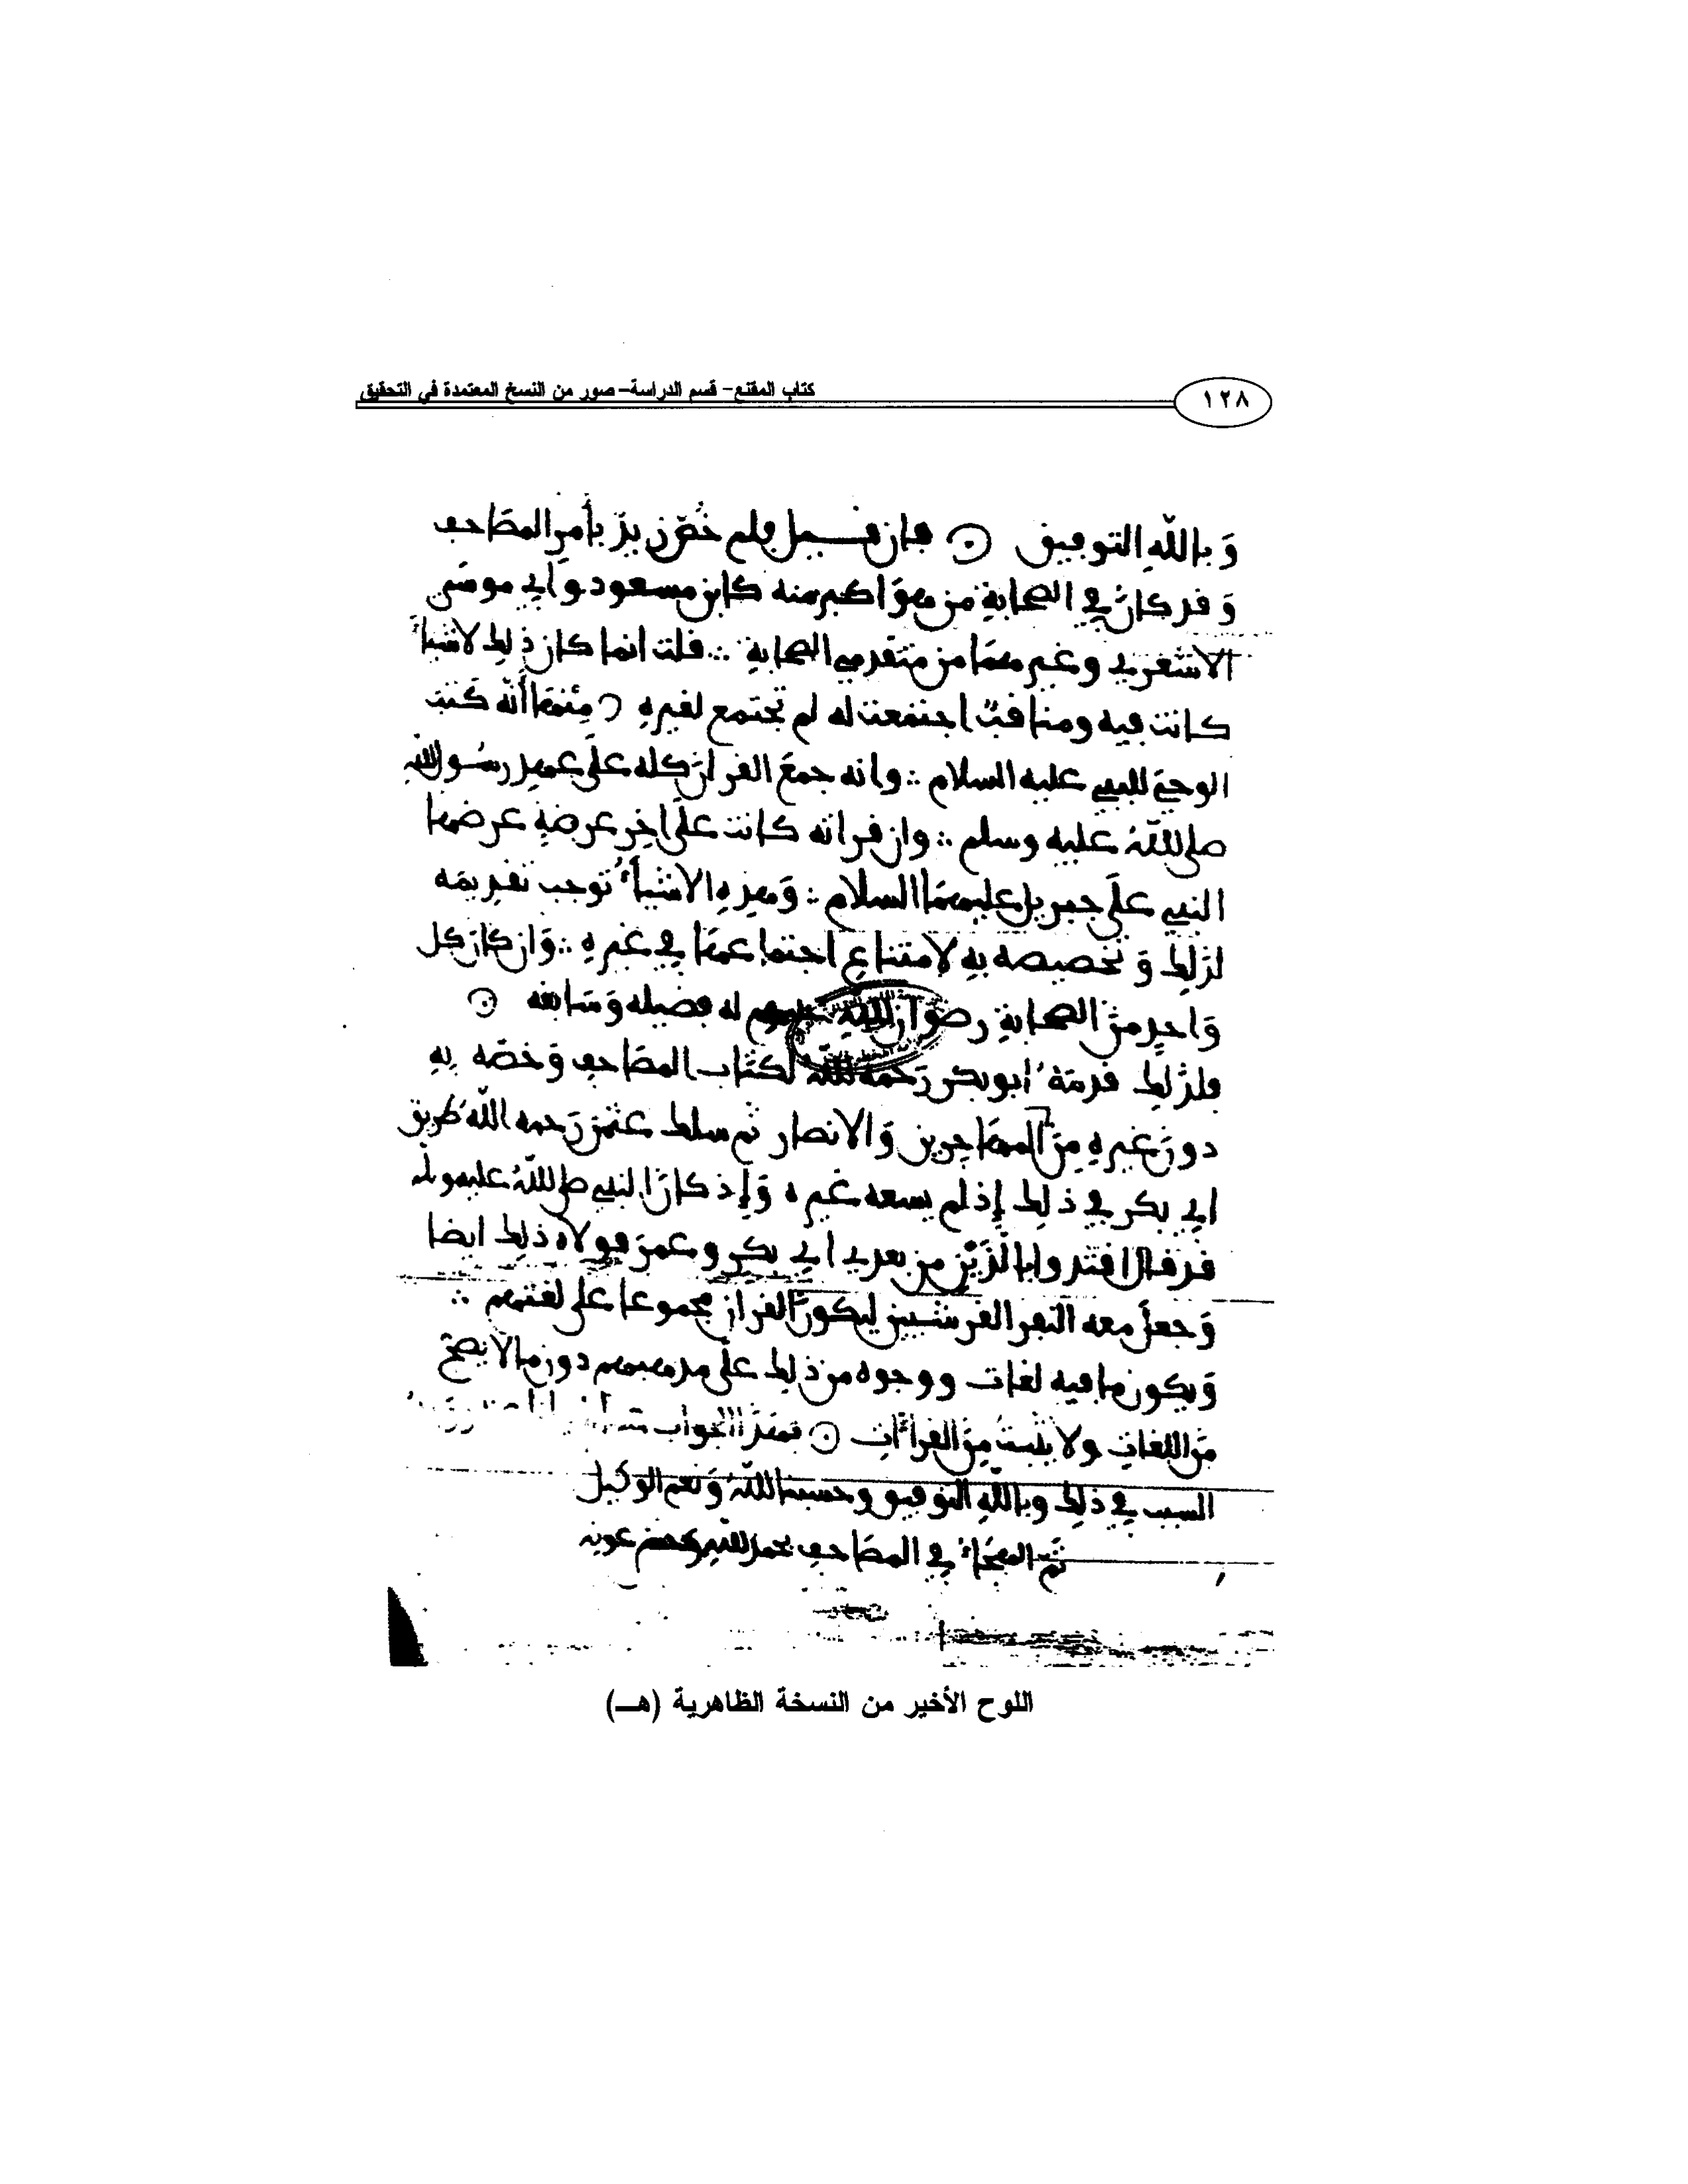 كتاب المقنع- قسم الدراسة- صور من النسخ المعتمدة في التحقيق
١٢٨
وَبالله التوفيق فإن قيل فلم خُصّ زيدٌ بأمر المصَاحف
وَقد كانَ في الصحابةِ من هوَ أكبر منه كابن مسعود وأبي موسَى
الاشعري وغيرهمَا من متقدمي الصحابةِ قلت انما كان ذلك لاشياءَ
كانت فيه ومناقبُ اجتمعت له لم تجتمع لغيرهِ مِنهَا أنه كَتب
الوحيَ للنبي عليه السلام وانه جمعَ القرانَ كله علَى عهد رسُول الله
صلى اللهُ عليه وسلم وان قراته كانت علَى اخِر عرضةٍ عرضهَا
النبي علَى جبريل عليهمَا السلام وَهذهِ الاشياءُ توجب تقديمَه
لذلك وَتخصيصه بهِ لامتناعِ اجتماعهَا في غيرهِ وَان كانَ كل
وَاحدٍ منَ الصحابةِ رضوَان اللهِ عليهم له فضيله وَسَابقه
فلذلك قدمَهُ ابو بكر رَحمهُ اللهُ لكتَاب المصَاحف وَخصّه بِهِ
دونَ غيرهِ مِنَ المهَاجِرين وَالانصار ثم سلك عثمن رَحمه اللهُ طريق
أبي بكر في ذلك إِذ لم يسعه غيره وَإِذ كانَ النبي صلى اللهُ عليه وسلم
قد قال اقتدوا بالذَيْنِ من بعدي ابي بكر وعمرَ فولاه ذلك ايضا
وَجعلَ معه النفر القرشيين ليكونَ القران مجموعا على لغتهم
وَيكون ما فيه لغات ووجوه من ذلك علَى مذهبهم دون ما لا يصحّ
منَ اللغاتِ ولا يثبتُ مِنَ القراءَاتِ فهذَا الجوابُ
السبب في ذلك وباللهِ التوفيق وحسبنا اللهُ وَنعم الوكيل
تمّ الهجَاءُ في المصَاحف بحمد اللهِ وَحسن عونه
اللوح الأخير من النسخة الظاهرية (هـ)